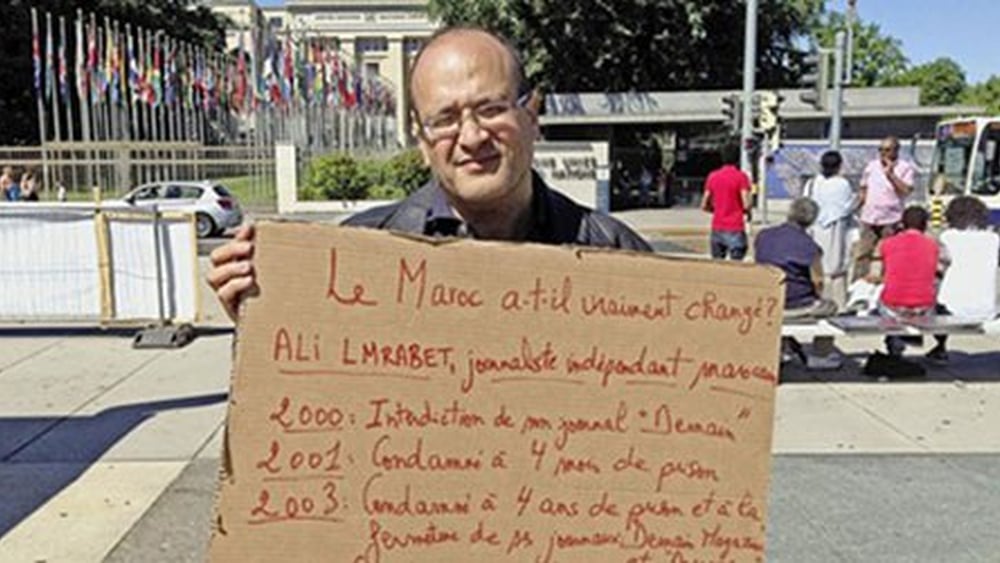 Le Maroc a-t-il vraiment changé?
ALi LMRABET, journaliste indépendant marocain
2000: Interdiction de mon journal "Demain"
2001: Condamné à 4 mois de prison
2003: Condamné à 4 ans de prison et à la
fermeture de ses journaux, Demain Magazine
et